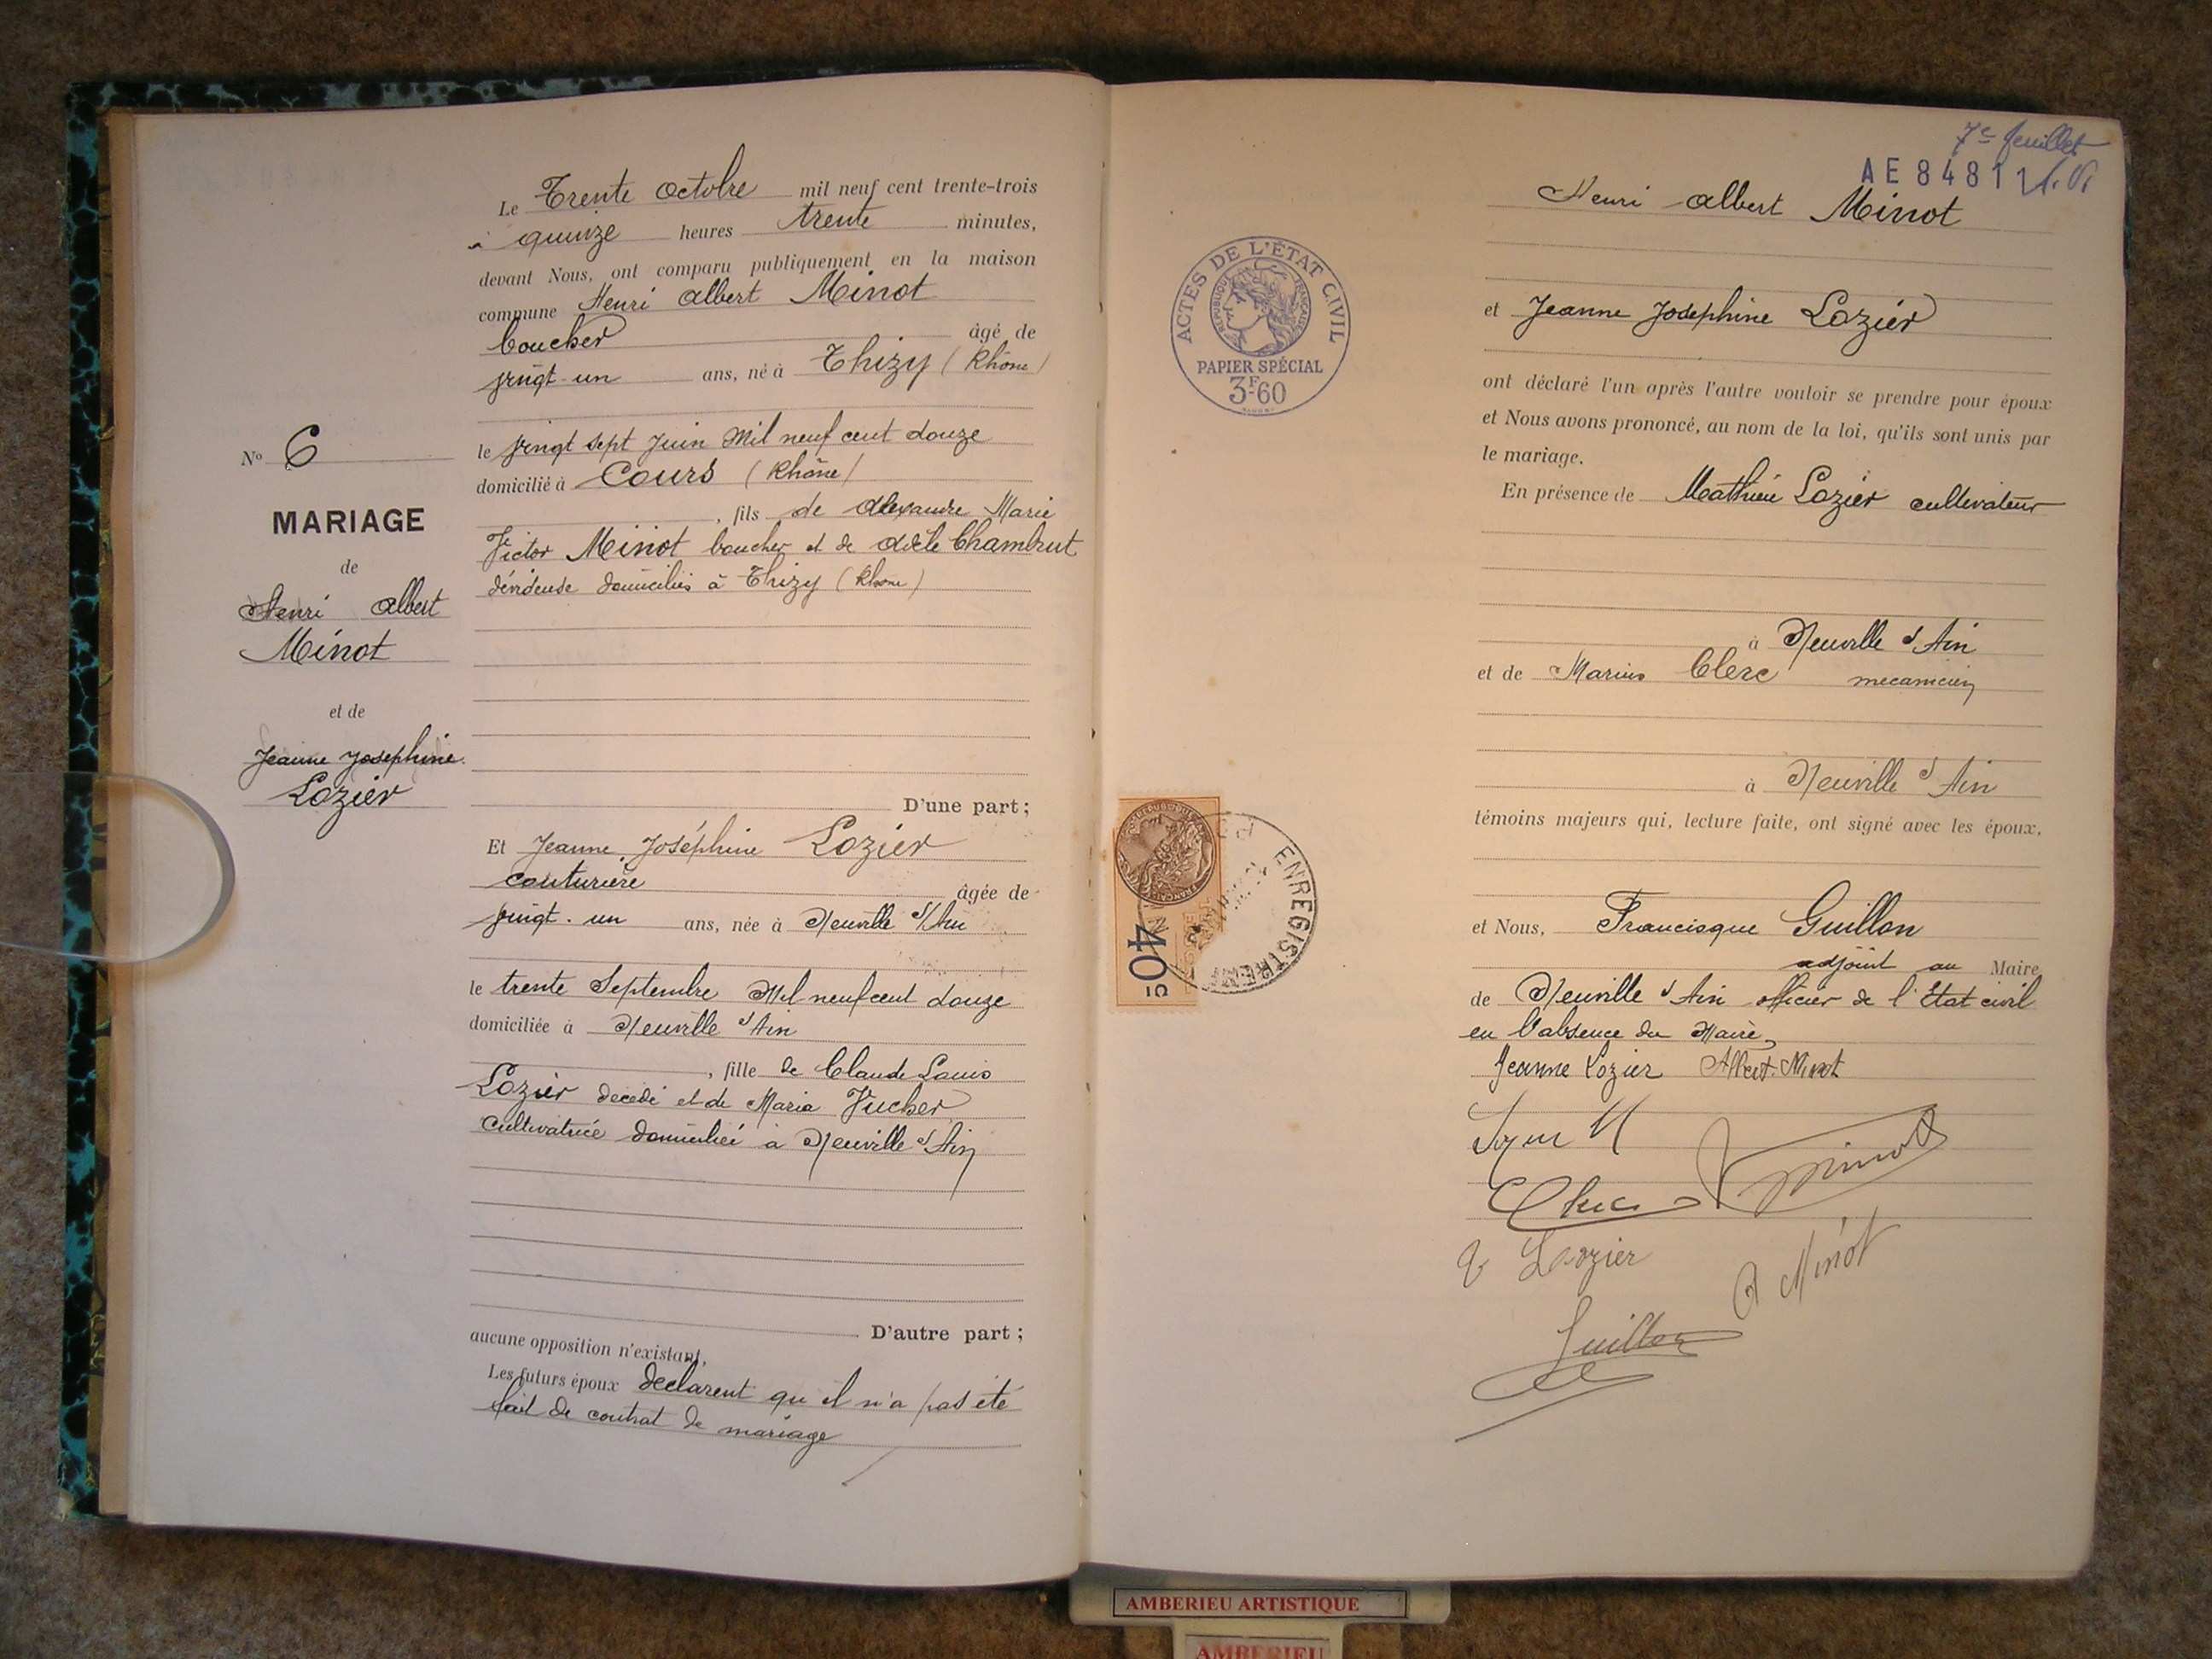 Le Trente Octobre mil neuf cent trente-trois
à quinze heures trente minutes,
devant Nous, ont comparu publiquement en la maison
commune Henri Albert Minot
boucher âgé de
vingt-un ans, né à Thizy (Rhône)
le vingt sept Juin Mil neuf cent douze
domicilié à Cours (Rhône)
, fils de Alexandre Marie
Victor Minot boucher et de Adèle Chambrut
dévideuse domiciliés à Thizy (Rhône)
D'une part;
Nº 6
MARIAGE
de
Henri Albert
Minot
et de
Jeanne Josephine
Lozier
Et Jeanne Joséphine Lozier
couturière âgée de
vingt-un ans, née à Neuville s/Ain
le trente Septembre Mil neuf cent douze
domiciliée à Neuville s/Ain
, fille de Claude Louis
Lozier décédé et de Maria Vucher
cultivatrice domiciliée à Neuville s/Ain
D'autre part;
aucune opposition n'existant,
Les futurs époux déclarent qu'il n'a pas été
fait de contrat de mariage
7e feuillet
AE 84811
Henri Albert Minot
et Jeanne Josephine Lozier
ont déclaré l'un après l'autre vouloir se prendre pour époux
et Nous avons prononcé, au nom de la loi, qu'ils sont unis par
le mariage.
En présence de Mathieu Lozier cultivateur
à Neuville s/Ain
et de Marius Clerc mecanicien
à Neuville s/Ain
témoins majeurs qui, lecture faite, ont signé avec les époux,
et Nous, Francisque Guillon
adjoint au Maire
de Neuville s/Ain officier de l'Etat civil
en l'absence du Maire,
Jeanne Lozier Albert Minot
Clerc Minot
Lozier
A Minot
Guillon
ACTES DE L'ÉTAT CIVIL
RÉPUBLIQUE FRANÇAISE
PAPIER SPÉCIAL
3F60
40c
ENREGISTREMENT
AMBERIEU ARTISTIQUE
AMBERIEU